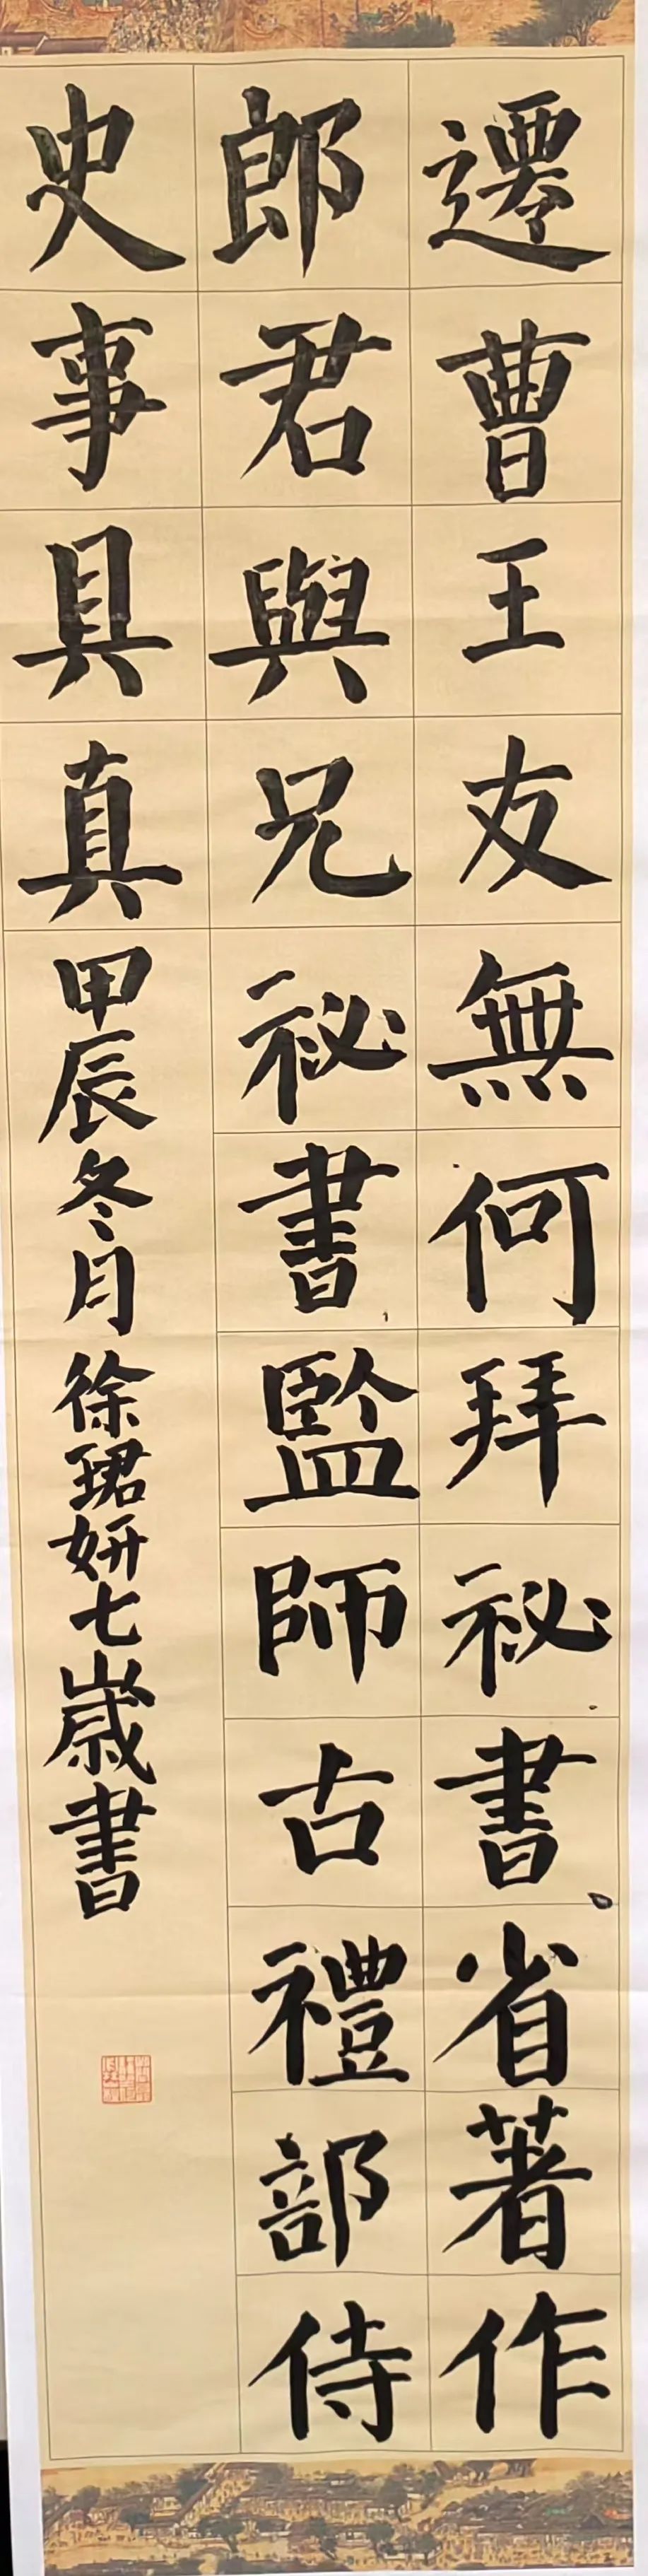 遷曹王友無何拜祕書省著作
郎君與兄祕書監師古禮部侍
史事具真甲辰冬月徐珺妍七歲書